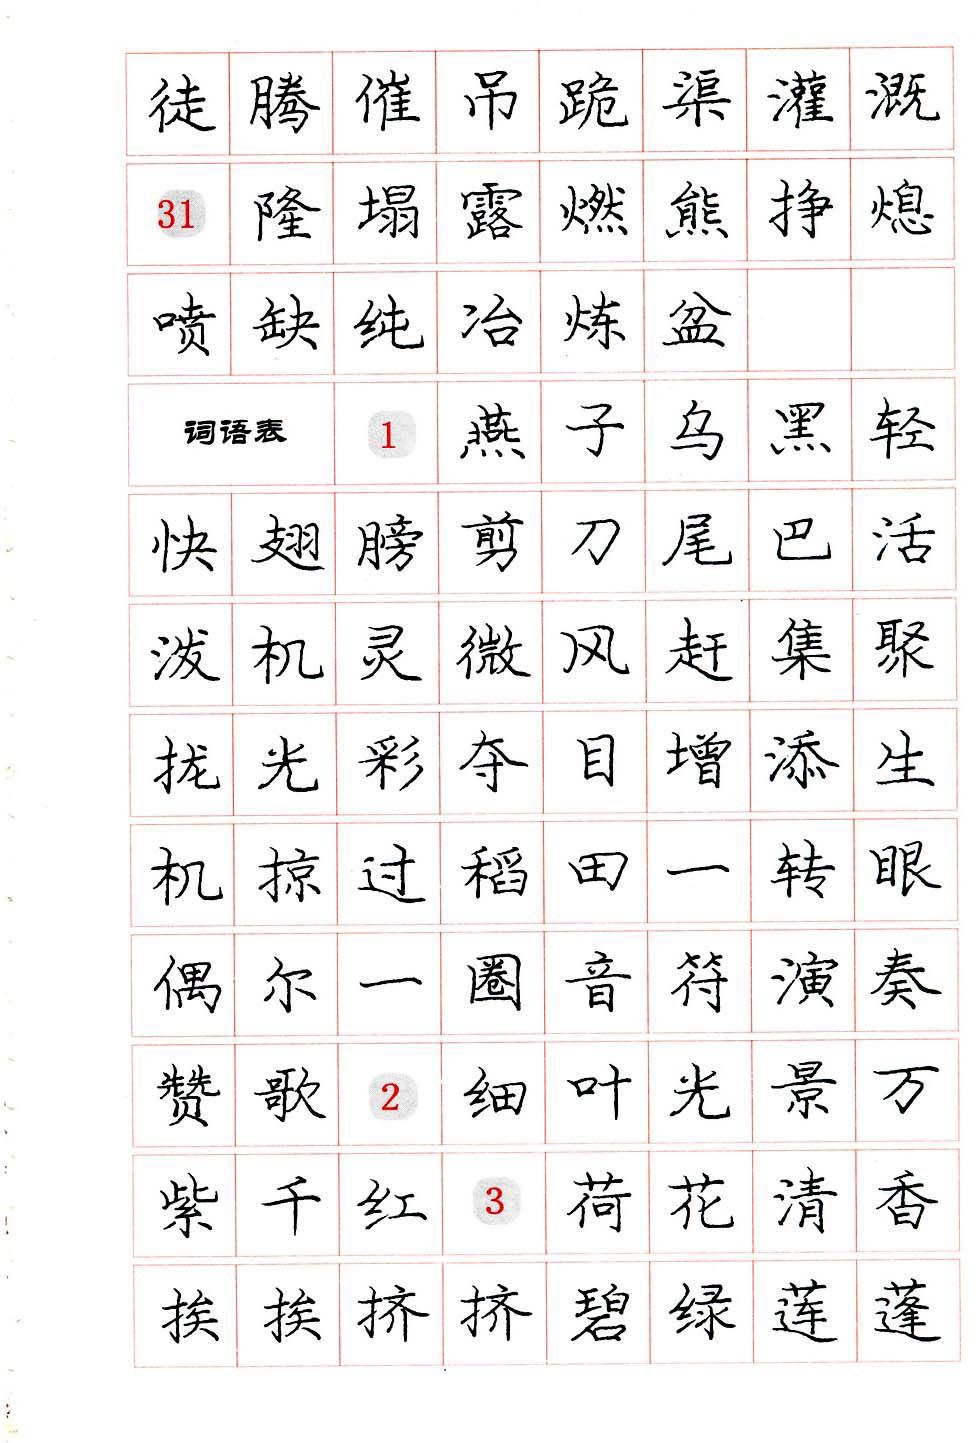 徒腾催吊跪渠灌溉
31隆塌露燃熊挣熄
喷缺纯冶炼盆
词语表1燕子乌黑轻
快翅膀剪刀尾巴活
泼机灵微风赶集聚
拢光彩夺目增添生
机掠过稻田一转眼
偶尔一圈音符演奏
赞歌2细叶光景万
紫千红3荷花清香
挨挨挤挤碧绿莲蓬